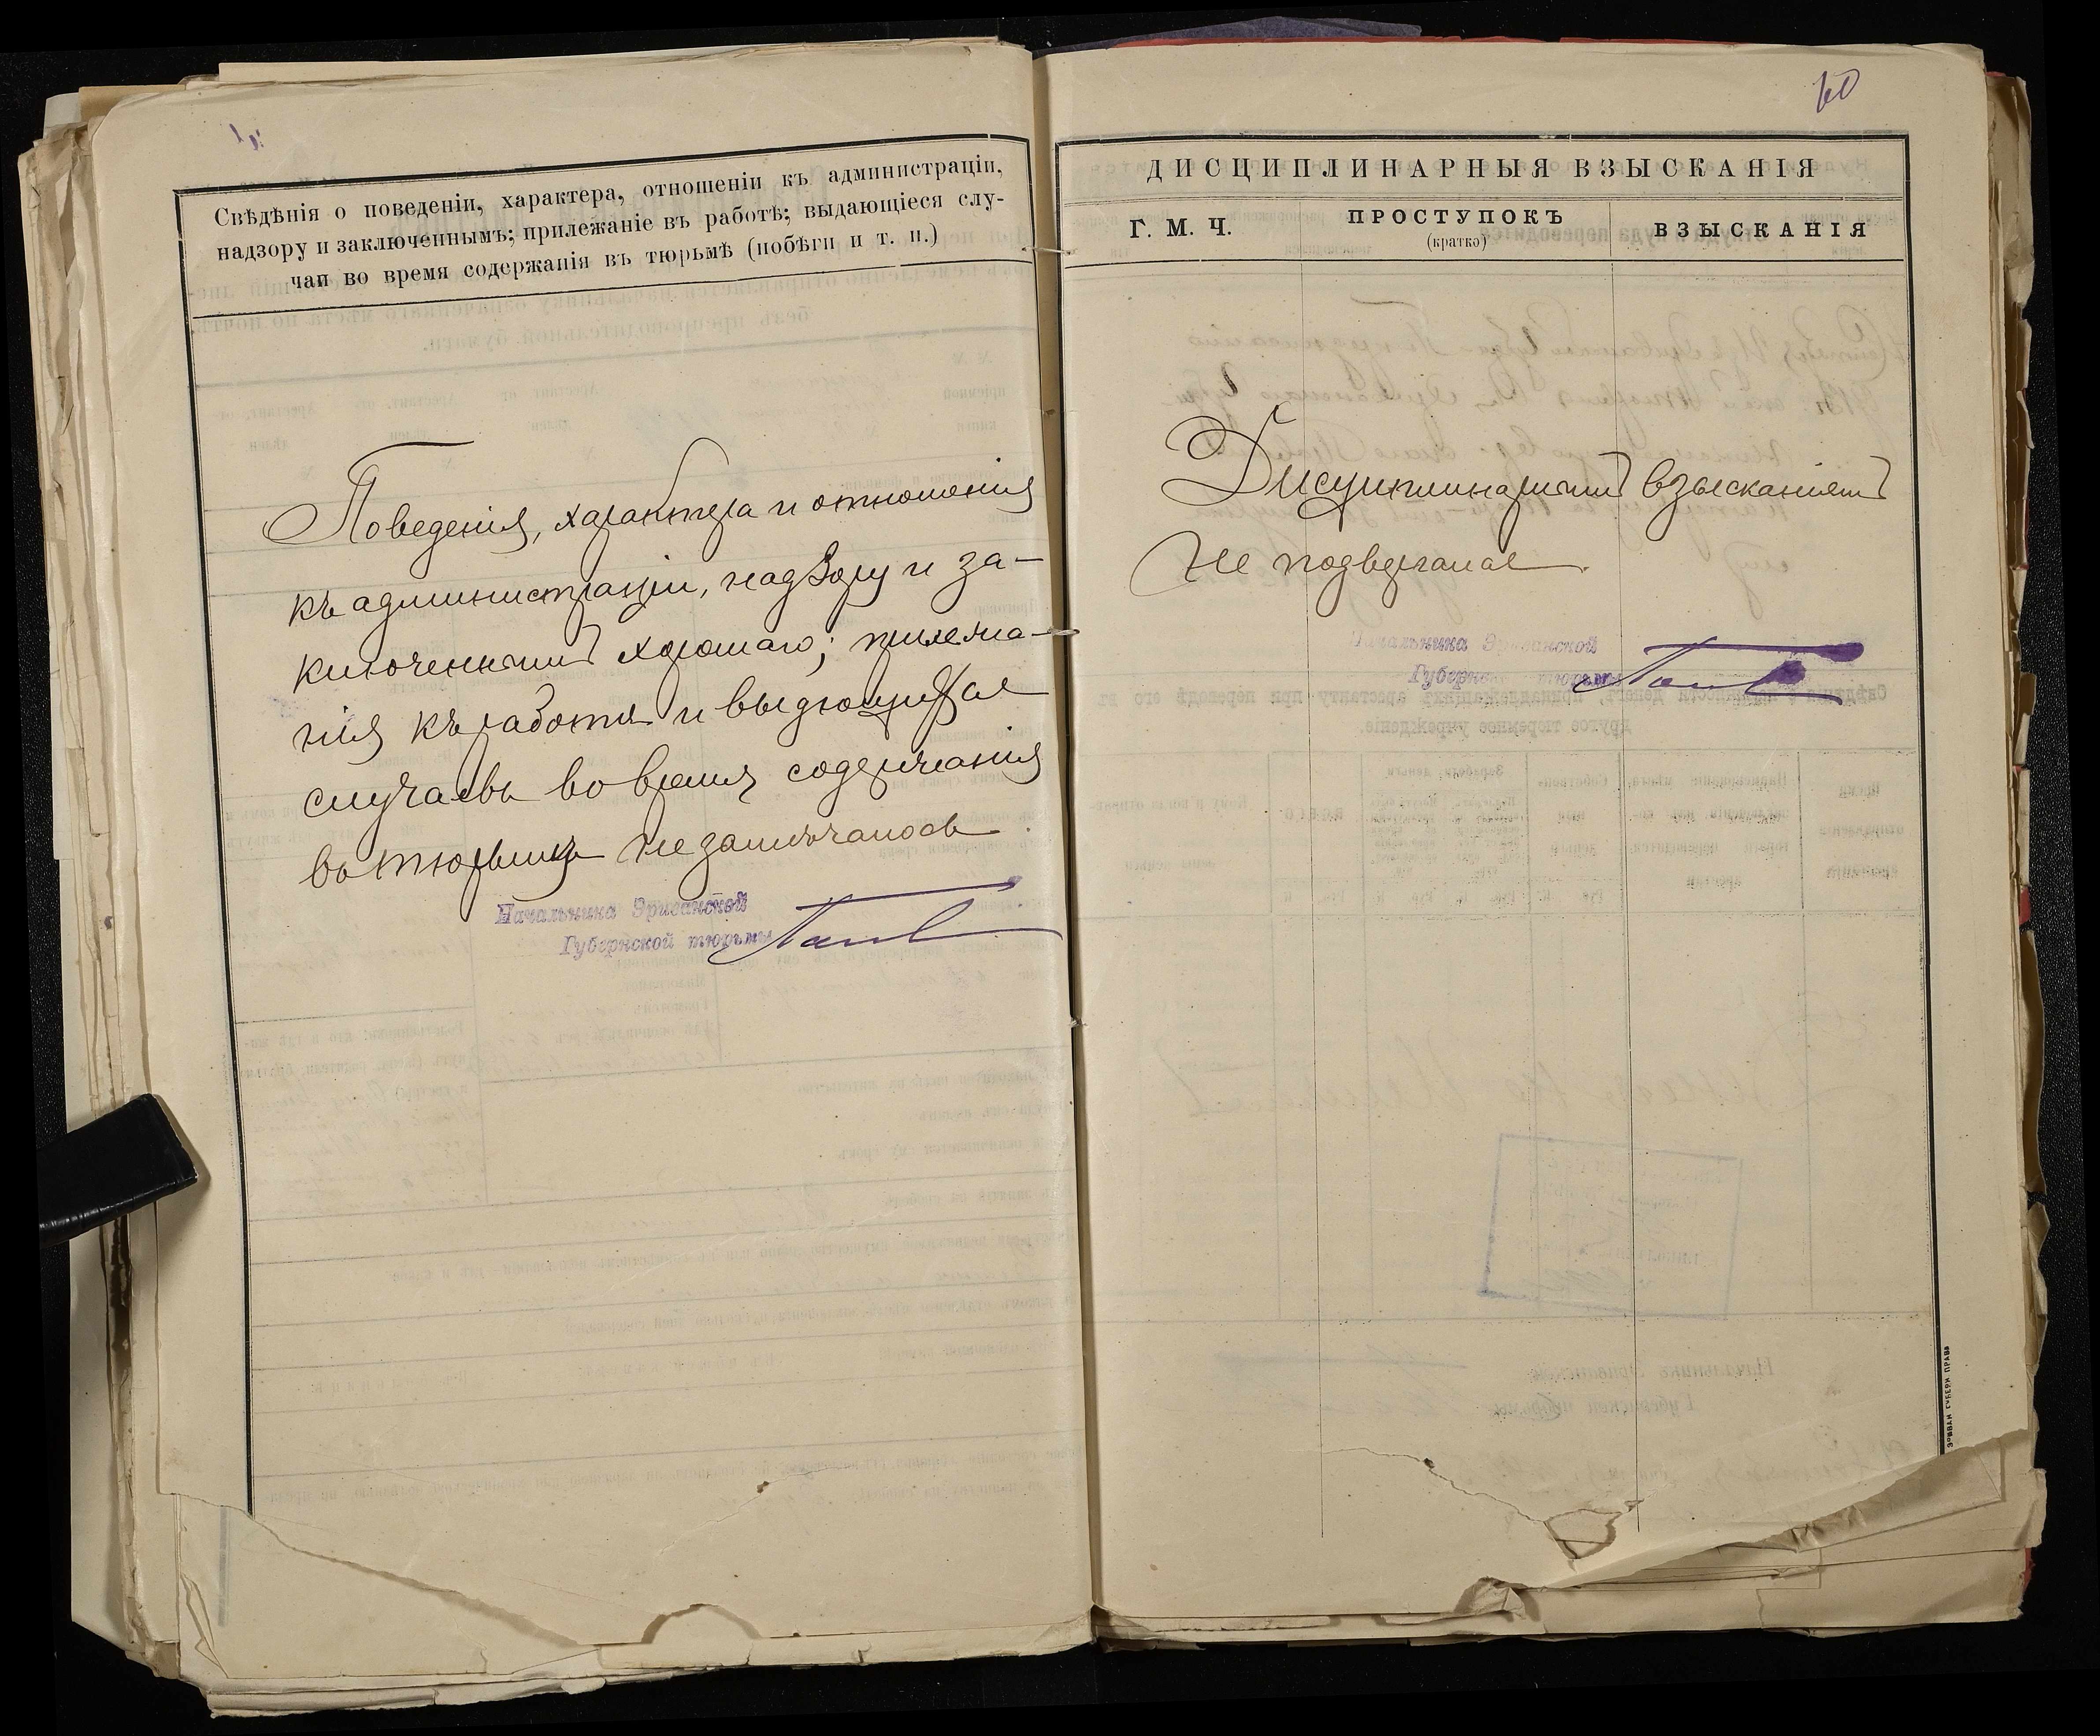 Свѣдѣнія о поведеніи, характера, отношеніи къ администраціи,
надзору и заключеннымъ; прилежаніе въ работѣ; выдающіеся слу-
чаи во время содержанія въ тюрьмѣ (побѣги и т. п.)
Поведенія, характера и отношенія
къ администраціи, надзору и за-
ключеннымъ хорошаго; прилежа-
нія къ работѣ и выдющихся
случаевъ во время содержанія
въ тюрьмѣ не замѣчалось
Начальника Эриванской
Губернской тюрьмы
60
ДИСЦИПЛИНАРНЫЯ ВЗЫСКАНІЯ
Г. М. Ч.
ПРОСТУПОКЪ
(кратко)
ВЗЫСКАНІЯ
Дисциплинарнымъ взысканіямъ
не подвергался
Начальника Эриванской
Губернской тюрьмы